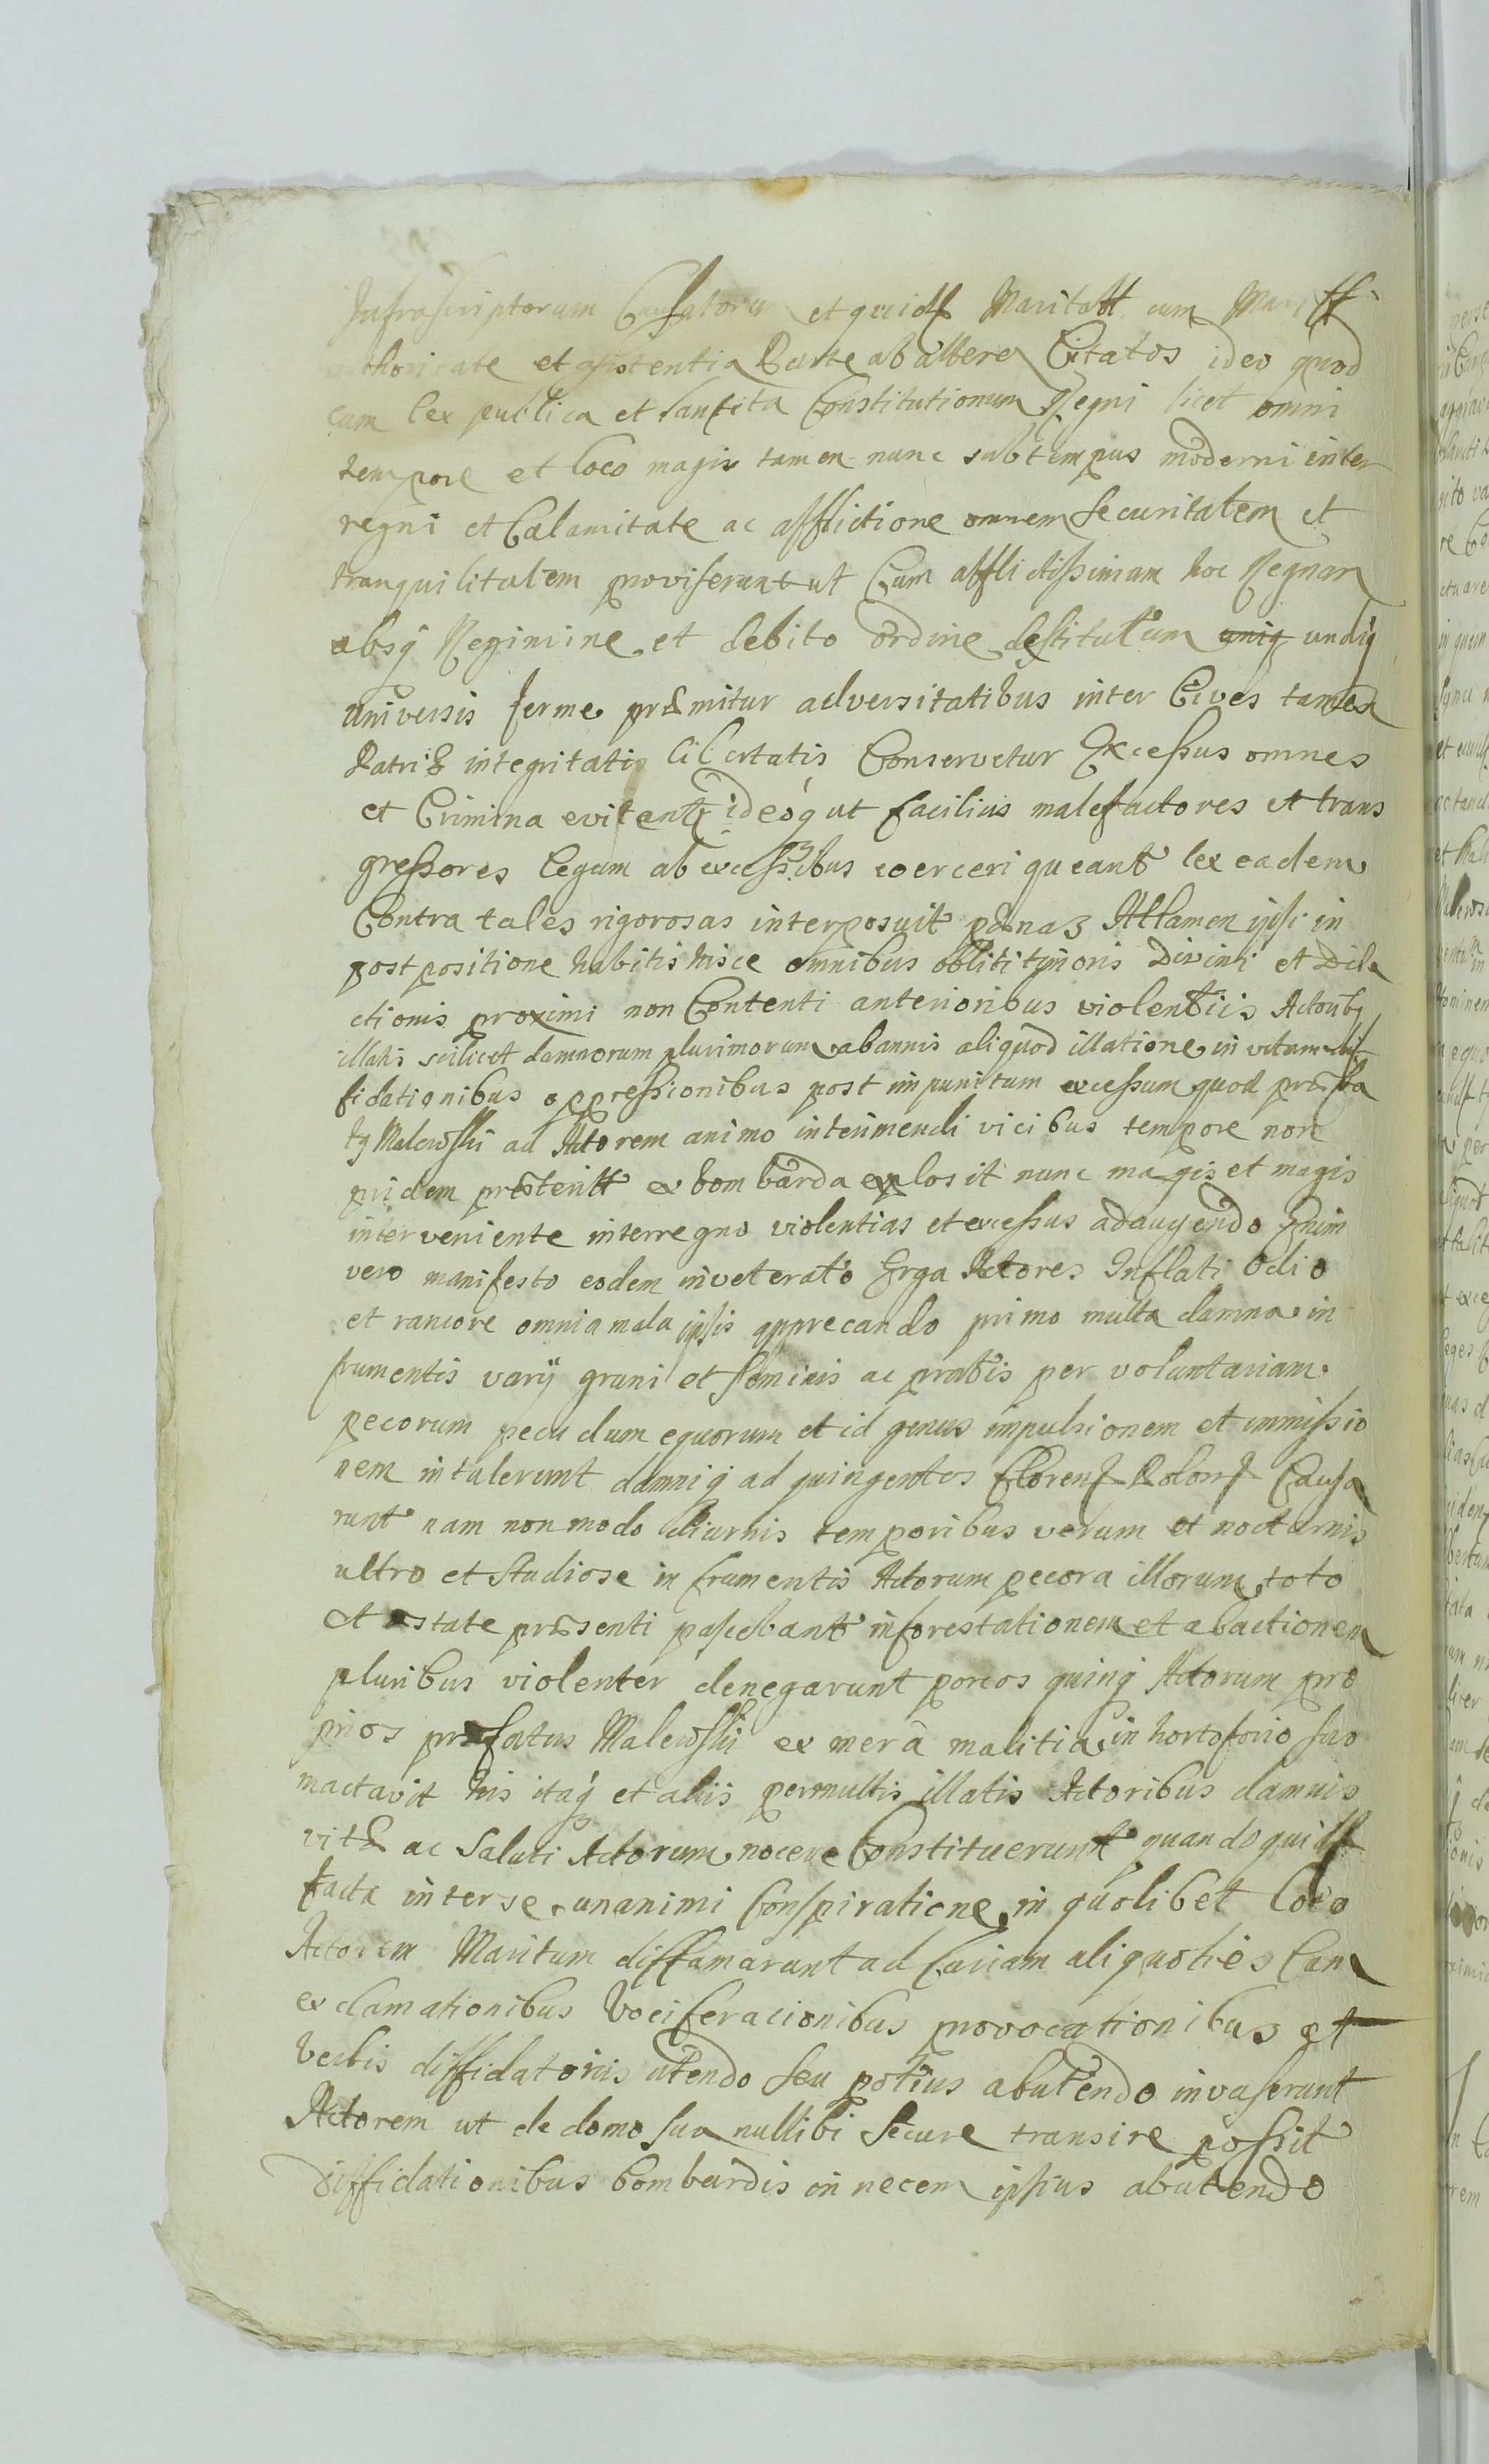 Infrascriptorum Causatorum et quidē Maritatt cum Maritt
authoritate et assistentia Parte ab altera Citatos ideo quod
cum lex publica et sancita Constitutionum Regni licet omni
tempore et loco magis tamen nunc sub tempus moderni inter
regni et Calamitate ac afflictione omnem securitatem et
tranquilitatem proviserunt ut Cum afflictissimum hoc Regnum
absq Regimine et debito ordine destitutum undiq
universis ferme præmitur adversitatibus inter Cives tamen
Patriæ integritatis libertatis Conservetur Excessus omnes
et Crimina evitent ideoq ut facilius malefactores et trans
gressores legum ab excessibus coerceri queant lex eadem
Contra tales rigorosas interposuit pænas Attamen ipsi in
post positione habitis hisce omnibus obliti timoris Divini et Dile
ctionis proximi non Contenti anterioribus violentiis Actorib
illatis scilicet damnorum plurimorum ab annis aliquod illatione in vitam dif
fidationibus oppressionibus post impunitum excessum quod præfa
tq Malewski ad Actorem animo interimendi vicibus tempore non
pridem præteritt ex bombarda explosit nunc magis et magis
interveniente interregno violentias et excessus adaugendo Enim
vero manifesto eodem inveterato Erga Actores Inflati odio
et rancore omnia mala ipsis apprecando primo multa damna in
frumentis varÿ grani et seminis ac pratis per voluntariam
pecorum pecudum equorum et id genus impulsionem et immissio
nem intulerunt damniq ad quingentos Floren Polon Causa
runt nam non modo diurnis temporibus verum et nocturnis
ultro et studiose in frumentis Actorum pecora illorum toto
et æstate præsenti pascebant inforestationem et abactionem
pluribus violenter denegarunt porcos quinq Actorum pro
prios præfatus Malewski ex merà malitia in horto forio suo
mactavit his itaq et aliis permultis illatis Actoribus damnis
vitæ ac Saluti Actorum nocere Constituerunt quando quidē
facta inter se unanimi Conspiratione in quolibet loco
Actorem Maritum diffamarunt ad Curiam aliquoties Cum
exclamationibus Vociferacionibus provocationibus et
Verbis diffidatoriis utendo seu potius abutendo invaserunt
Actorem ut de domo sua nullibi Secure transire possit
Diffidationibus bombardis in necem ipsius abutendo